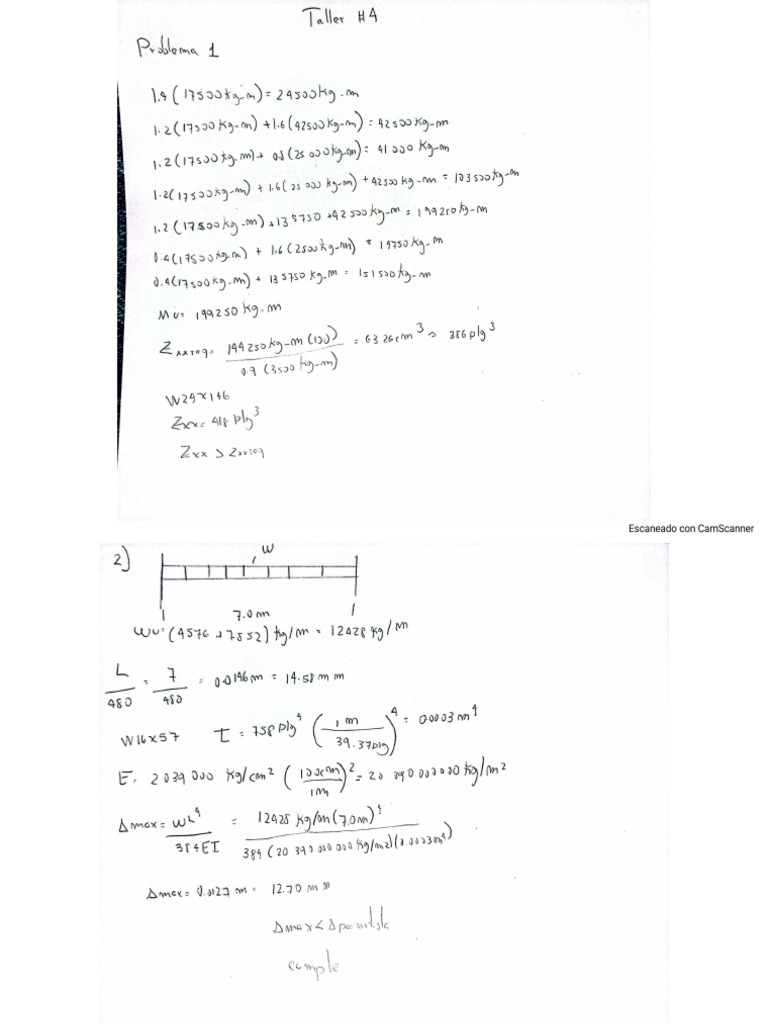 Taller #4
Problema 1
1.4 (17500 kg-m) = 24500 kg-m
1.2 (17500 kg-m) + 1.6 (42500 kg-m) = 42500 kg-m
1.2 (17500 kg-m) + 0.8 (25000 kg-m) = 41000 kg-m
1.2 (17500 kg-m) + 1.6 (25000 kg-m) + 42500 kg-m = 103500 kg-m
1.2 (17500 kg-m) + 135750 + 42500 kg-m = 199250 kg-m
0.9 (17500 kg-m) + 1.6 (2500 kg-m) = 19750 kg-m
0.9 (17500 kg-m) + 135750 kg-m = 151500 kg-m
Mu = 199250 kg-m
Zxx req = 199250 kg-m (100) / 0.9 (3500 kg-m) = 6326 cm³ ≈ 386 plg³
W24x146
Zxx = 418 plg³
Zxx > Zxx req
Escaneado con CamScanner
2)
w
7.0 m
Wu = (4576 + 7852) kg/m = 12428 kg/m
L/480 = 7/480 = 0.0146 m = 14.58 mm
W16x57 I = 758 plg⁴ (1 m / 39.37 plg)⁴ = 0.0003 m⁴
E = 2039000 kg/cm² (100 cm / 1 m)² = 20 390 000 000 kg/m²
Δmax = wL⁴ / 384EI = 12428 kg/m (7.0 m)⁴ / 384 (20 390 000 000 kg/m²) (0.0003 m⁴)
Δmax = 0.0127 m = 12.70 mm
Δmax < Δpermitida
cumple